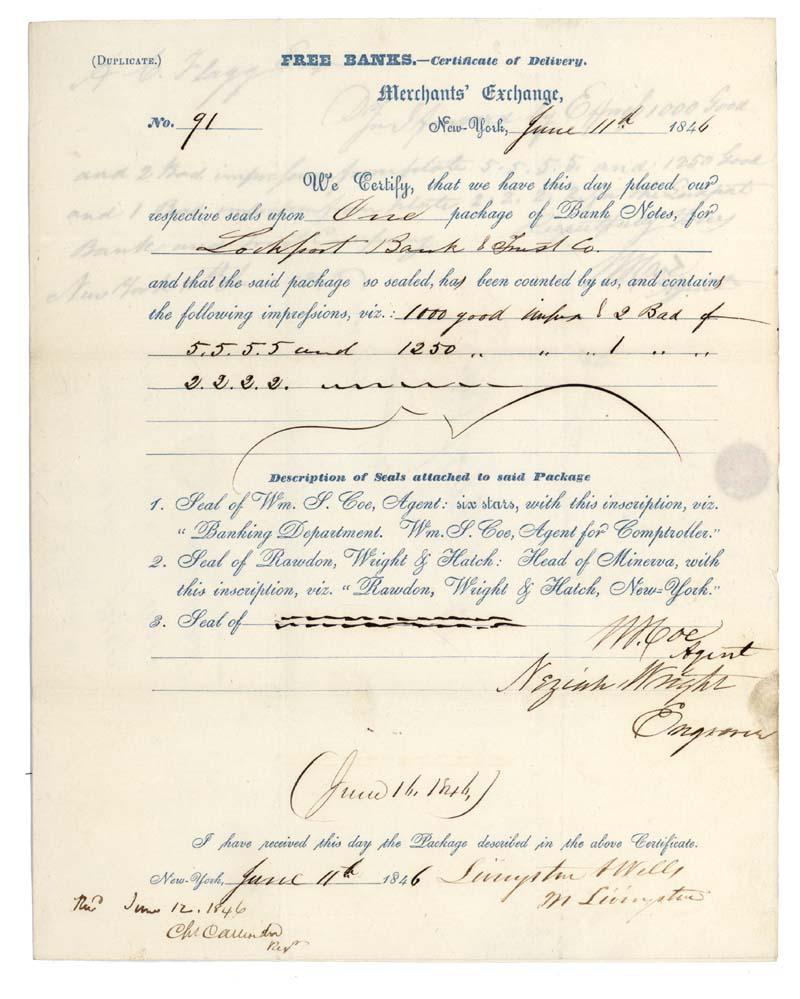 (DUPLICATE.)
FREE BANKS.—Certificate of Delivery.
Merchants' Exchange,
No. 91
New-York, June 11th. 1846
We Certify, that we have this day placed our
respective seals upon One package of Bank Notes, for
Lockport Bank & Trust Co.
and that the said package so sealed, has been counted by us, and contains
the following impressions, viz.: 1000 good impss & 2 Bad of
5.5.5.5 and 1250 " " " 1 " "
2.2.2.2.
Description of Seals attached to said Package
1. Seal of Wm. S. Coe, Agent: six stars, with this inscription, viz.
"Banking Department. Wm. S. Coe, Agent for Comptroller."
2. Seal of Rawdon, Wright & Hatch: Head of Minerva, with
this inscription, viz. "Rawdon, Wright & Hatch, New-York."
3. Seal of
W. Coe
Agent
Neziah Wright
Engraver
(June 16. 1846.)
I have received this day the Package described in the above Certificate.
New-York, June 11th 1846 Livingston & Wells
M Livingston
June 12. 1846